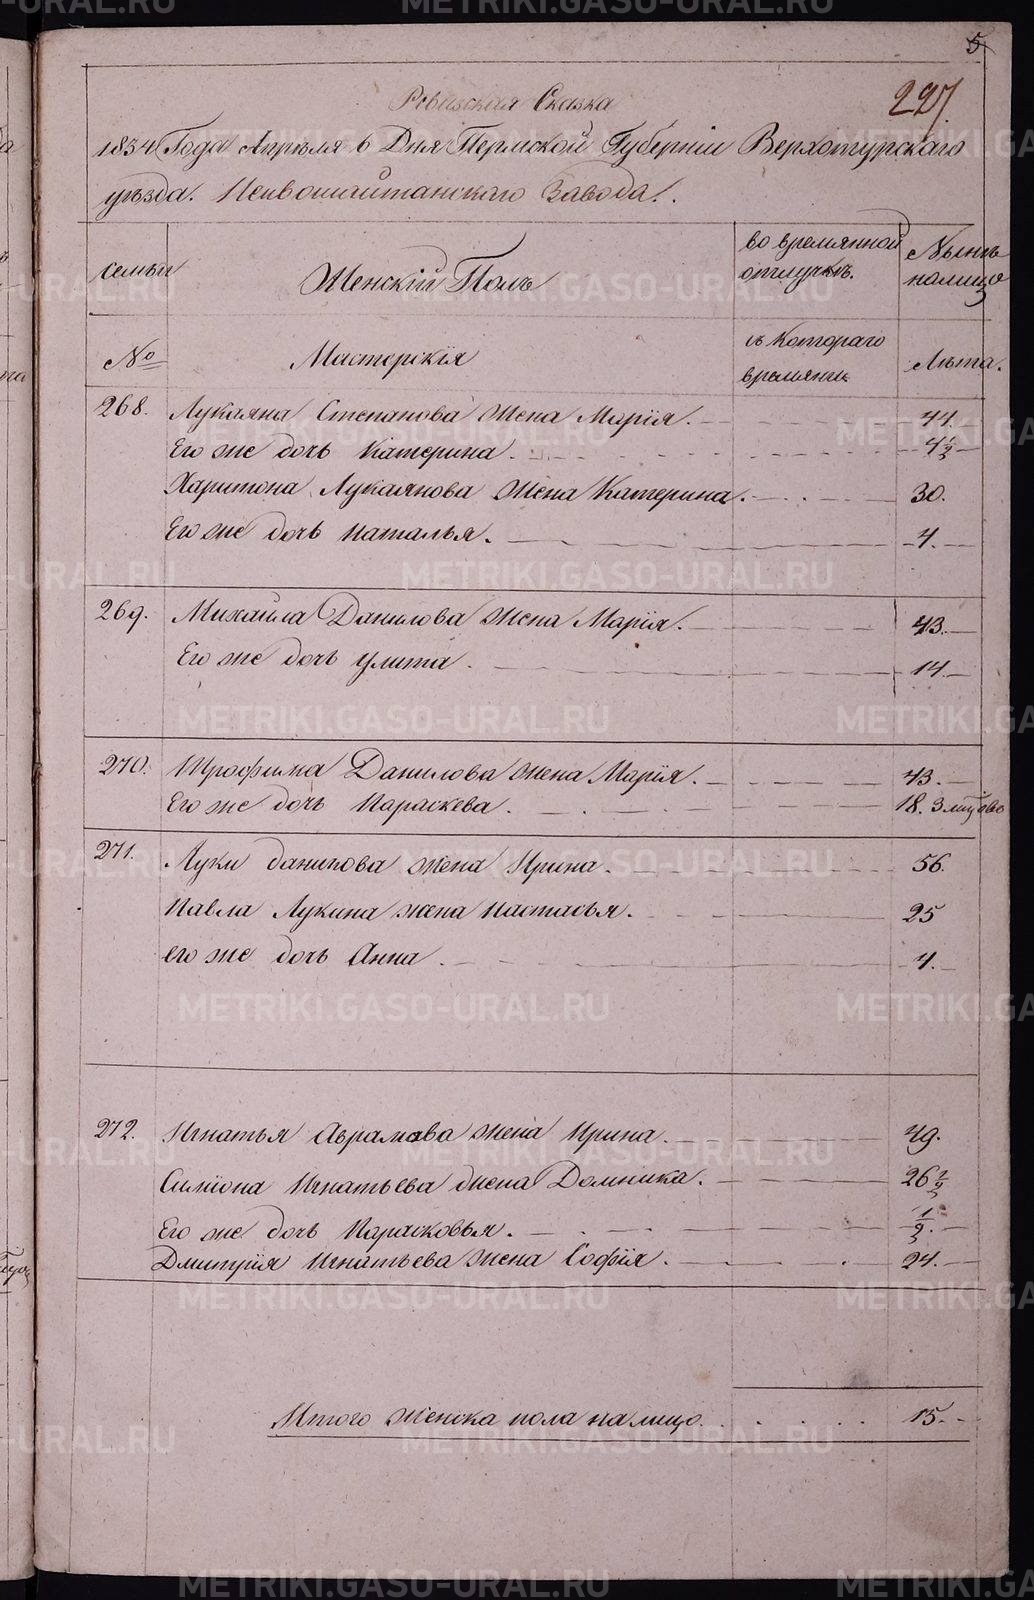 5
227
Ревизская Сказка
1834 Года Апреля 6 Дня Пермской Губерніи Верхотурскаго
уѣзда. Невьошайтанскаго Завода.
семьи
Женскій Полъ
во времянной отлучкѣ.
Нынѣ налицо
№
Мастерскія
съ Котораго времяни
Лѣта.
268. Лукаяна Степанова жена Марія. 44.
Его же дочь Катерина. 4 1/2
Харитона Лукаянова жена Катерина. 30.
Его же дочь Наталья. 4.
269. Михаила Данилова жена Марія. 43.
Его же дочь Улита. 14.
270. Трофима Данилова жена Марія. 43.
Его же дочь Параскева. 18.
271. Луки данилова жена Ирина. 56.
Павла Лукина жена Настасья. 25
его же дочь Анна. 4.
272. Игнатья Аврамова жена Ирина. 49.
Симіона Игнатьева жена Домника. 26 1/2
Его же дочь Парасковья. 1/2.
Дмитрія Игнатьева жена Софія. 24.
Итого женска пола налицо. 15.
METRIKI.GASO-URAL.RU